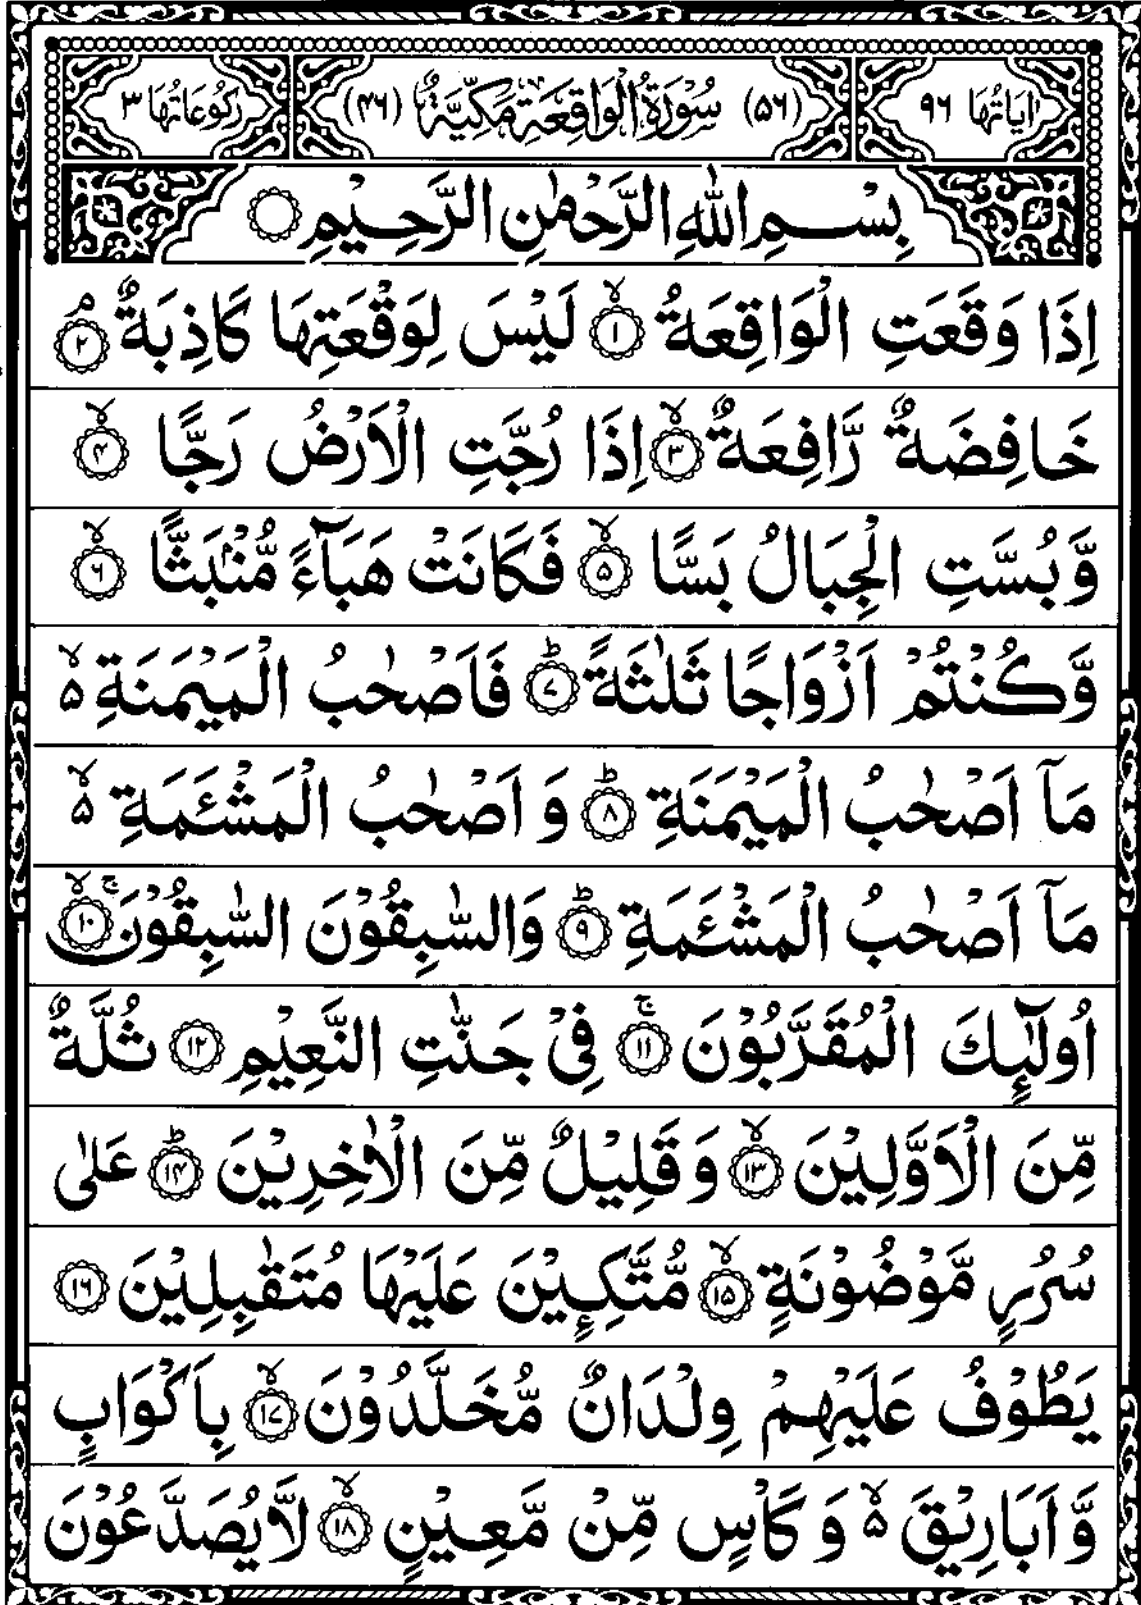 اٰيَاتُهَا ٩٦ (٥٦) سُوْرَةُ الْوَاقِعَةِ مَكِّيَّةٌ (٤٦) رُكُوْعَاتُهَا ٣
بِسْمِ اللّٰهِ الرَّحْمٰنِ الرَّحِيْمِ
اِذَا وَقَعَتِ الْوَاقِعَةُ ۙ﴿١﴾ لَيْسَ لِوَقْعَتِهَا كَاذِبَةٌ ۘ﴿٢﴾
خَافِضَةٌ رَّافِعَةٌ ۙ﴿٣﴾ اِذَا رُجَّتِ الْاَرْضُ رَجًّا ۙ﴿٤﴾
وَّبُسَّتِ الْجِبَالُ بَسًّا ۙ﴿٥﴾ فَكَانَتْ هَبَآءً مُّنْۢبَثًّا ۙ﴿٦﴾
وَّكُنْتُمْ اَزْوَاجًا ثَلٰثَةً ؕ﴿٧﴾ فَاَصْحٰبُ الْمَيْمَنَةِ ۙ۵
مَآ اَصْحٰبُ الْمَيْمَنَةِ ؕ﴿٨﴾ وَ اَصْحٰبُ الْمَشْـَٔمَةِ ۙ۵
مَآ اَصْحٰبُ الْمَشْـَٔمَةِ ؕ﴿٩﴾ وَالسّٰبِقُوْنَ السّٰبِقُوْنَ ۚۙ﴿١٠﴾
اُولٰٓئِكَ الْمُقَرَّبُوْنَ ۚ﴿١١﴾ فِيْ جَنّٰتِ النَّعِيْمِ ﴿١٢﴾ ثُلَّةٌ
مِّنَ الْاَوَّلِيْنَ ۙ﴿١٣﴾ وَ قَلِيْلٌ مِّنَ الْاٰخِرِيْنَ ؕ﴿١٤﴾ عَلٰى
سُرُرٍ مَّوْضُوْنَةٍ ۙ﴿١٥﴾ مُّتَّكِـِٕيْنَ عَلَيْهَا مُتَقٰبِلِيْنَ ﴿١٦﴾
يَطُوْفُ عَلَيْهِمْ وِلْدَانٌ مُّخَلَّدُوْنَ ۙ﴿١٧﴾ بِاَكْوَابٍ
وَّ اَبَارِيْقَ ۙ۵ وَ كَاْسٍ مِّنْ مَّعِيْنٍ ۙ﴿١٨﴾ لَّا يُصَدَّعُوْنَ